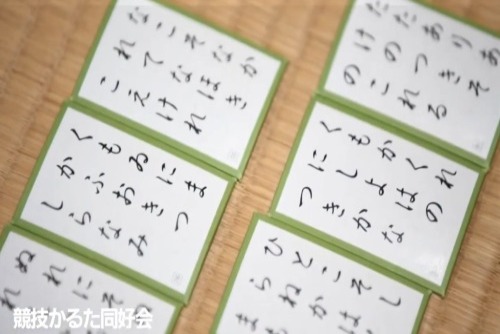 なこそなか
れてなほき
こえけれ
たたありあ
けのつきそ
のこれる
くもゐにま
かふおきつ
しらなみ
くもかくれ
にしよはの
つきかな
ぬれにそ
れ
ひとこそし
らねかは
ま
競技かるた同好会